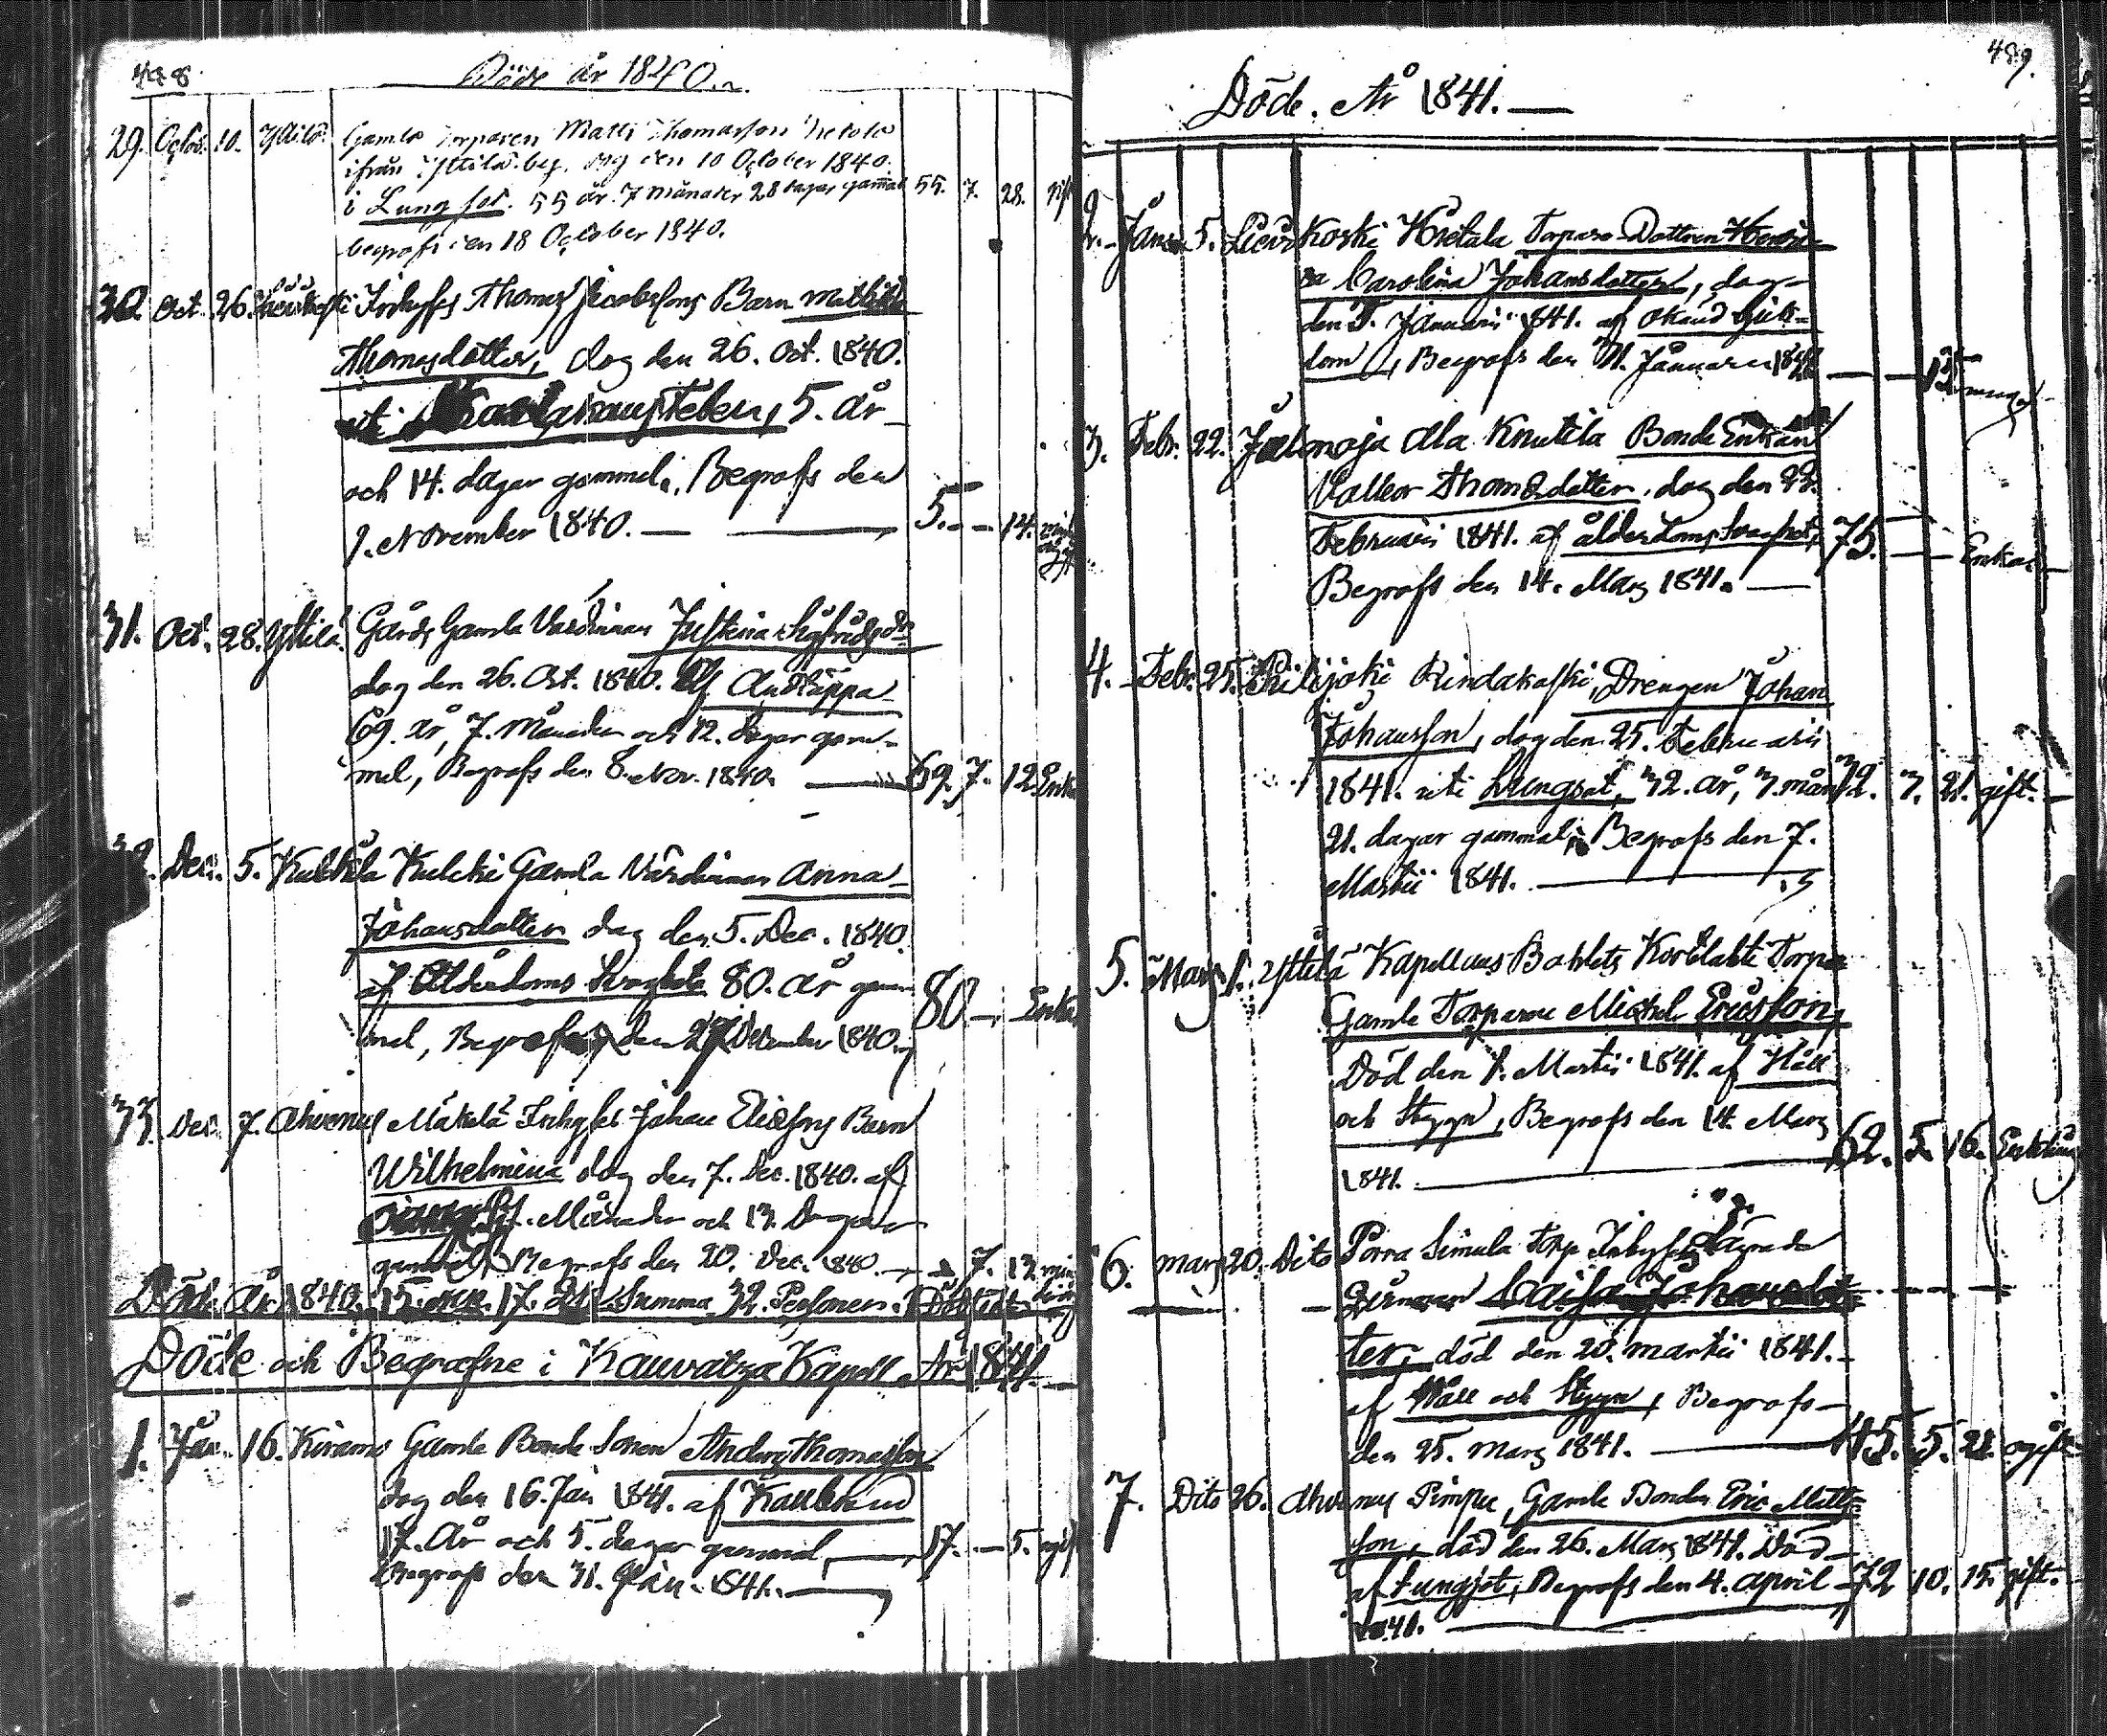 448
Döde år 1840.
29. Octob. 10. Yttilä. Gamla Torparen Matts Thomasson
ifrån Yttilä by, dog den 10 October 1840.
i Lungsot. 55 år 7 månader 28 dagar gammal 55. 7. 28. gift
begrofs den 18 October 1840.
30. Oct. 26. Inhyses Thomas Jacobssons Barn Mathilda
Thomasdotter, dog den 26. Oct. 1840.
uti 5. År
och 14. dagar gammal, Begrofs den
1. November 1840. — 5. - - 14.
31. Oct. 28. Yttilä. Gårds Gamla Värdinnan Justina Sigfridsdr
dog den 26. Oct. 1840. Af Andtäppa
69. år, 7. Månader och 12. dagar gam-
mal, Begrofs den 8. Nov. 1840. — 69. 7. 12. Enka
32. Dec. 5. Kulkila Kulcki Gamla Värdinnan Anna
Johansdotter dog den 5. Dec. 1840.
af Ålderdoms Svaghet 80. År gam
mal, Begrofs den 27 December 1840. 80. - Enka
33. Dec. 7. Ahvenus Mäkelä Inhyses Johan Eliassons Barn
Wilhelmina dog den 7. Dec. 1840. af
Månader och 13. Dagar
gammal, Begrofs den 20. Dec. 1840. — 7. 13
Döde År 1840. 15. 17. Summa 32. Personer.
Döde och Begrafne i Kauvatza Kapell År 1841.
1. Jan. 16. Kiramo Gamle Bonde Sonen Anders Thomasson
dog den 16. Jan 1841. af Kallbrand
17. År och 5. dagar gammal, — 17. — 5. ogift
Begrofs den 31. Jan. 1841. —
449.
Döde. År 1841. —
2. Janu. 5. Lievikoski Hietala Torpare-Dottren Henri-
ca Carolina Johansdotter, dog
den 5. Januarii 1841. af okänd Sjuk-
dom, Begrofs den 31. Januarii 1841
3. Febr. 22. Jalonoja Ala Knutila Bonde Enkan
Valbor Thomsdotter, dog den 22.
Februarii 1841. af ålderdoms svaghet, 75. — Enka. —
Begrofs den 14. Mars 1841. —
4. Febr. 25. Piilijoki Rindakoski, Drengen Johan
Johansson, dog den 25. Februarii
1841. uti Lungsot, 32. år, 7. mån 32. 7. 21. gift. —
21. dagar gammal, Begrofs den 7.
Martii 1841. —
5. Mars 1. Yttilä Kapellans Bohlets Torpa
Gamle Torparen Michel Ericsson,
Död den 1. Martii 1841. af Håll
och Stygn, Begrofs den 14. Mars
1841. — 62. 5. 16. Enkling
6. Mars 20. Dito Porra Simula Torp Inhyses
Lovisa Johansdot-
ter, död den 20. martii 1841.
af Håll och Stygn, Begrofs
den 25. Mars 1841. — 45. 5. 21. ogift
7. Dito 26. Ahvenus Pimpu, Gamle Bonden Eric Matts-
son, död den 26. Mars 1841. Död
af Lungsot, Begrofs den 4. April — 72 10. 15. gift.
1841. —